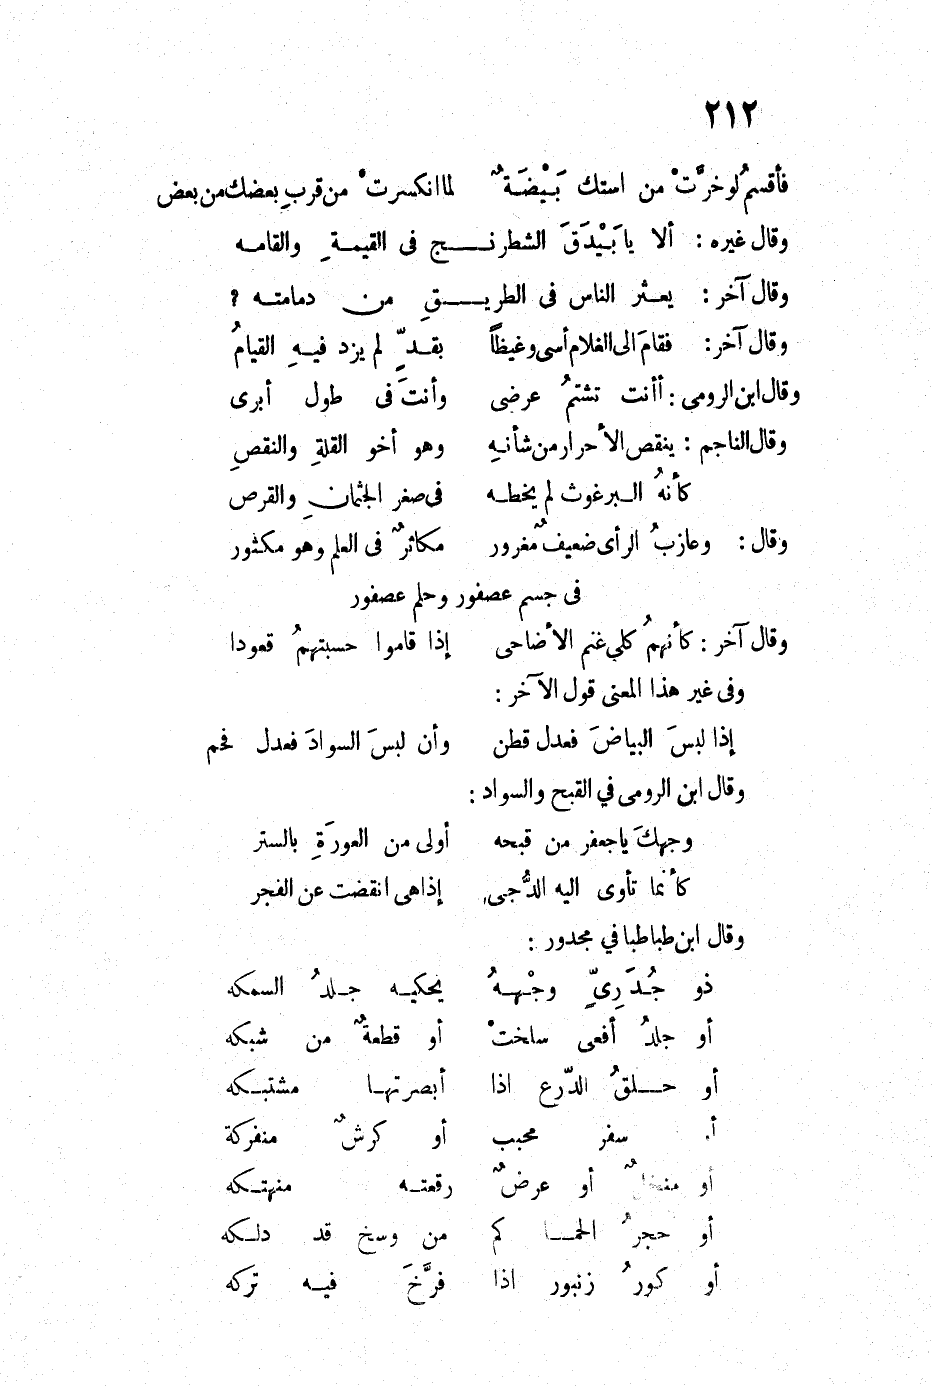 ٢١٢
فأقسمُ لو خرَّتْ من استك بَيْضَةٌ لما انكسرتْ من قربِ بعضك من بعض
وقال غيره : ألا يا بَيْدَقَ الشطرنج فى القيمةِ والقامه
وقال آخر : يعثر الناس فى الطريقِ من دمامته ?
وقال آخر: فقامَ الى الغلام أسى وغيظاً بقدٍّ لم يزد فيهِ القيامُ
وقال ابن الرومى : أأنت تشتمُ عرضى وأنتَ فى طول أبرى
وقال الناجم : ينقص الأحرار من شأنهِ وهو أخو القلةِ والنقصِ
كأنهُ البرغوث لم يخطه فى صغر الجثمانِ والقرص
وقال : وعازبُ الرأى ضعيفٌ مغرور مكاثرٌ فى العلم وهو مكثور
فى جسم عصفور وحلم عصفور
وقال آخر : كأنهمُ كلى غنم الأضاحى إذا قاموا حسبتهمُ قعودا
وفى غير هذا المعنى قول الآخر :
إذا لبسَ البياضَ فعدل قطن وأن لبسَ السوادَ فعدل فحم
وقال ابن الرومى في القبح والسواد :
وجهكَ ياجعفر من قبحه أولى من العورَةِ بالستر
كأنما تأوى اليه الدُّجى إذا هى انقضت عن الفجر
وقال ابن طباطبا في مجدور :
ذو جُدَرِىٍّ وجْههُ يحكيه جلدُ السمكه
أو جلدُ أفعى سلختْ أو قطعةٌ من شبكه
أو حلقُ الدّرع اذا أبصرتها مشتبكه
سفر محبب أو كرشٌ منفركة
أو أو عرضٌ رقعته منهتكه
أو حجرُ الحما كم من وسخ قد دلكه
أو كورُ زنبور اذا فرَّخَ فيه تركه